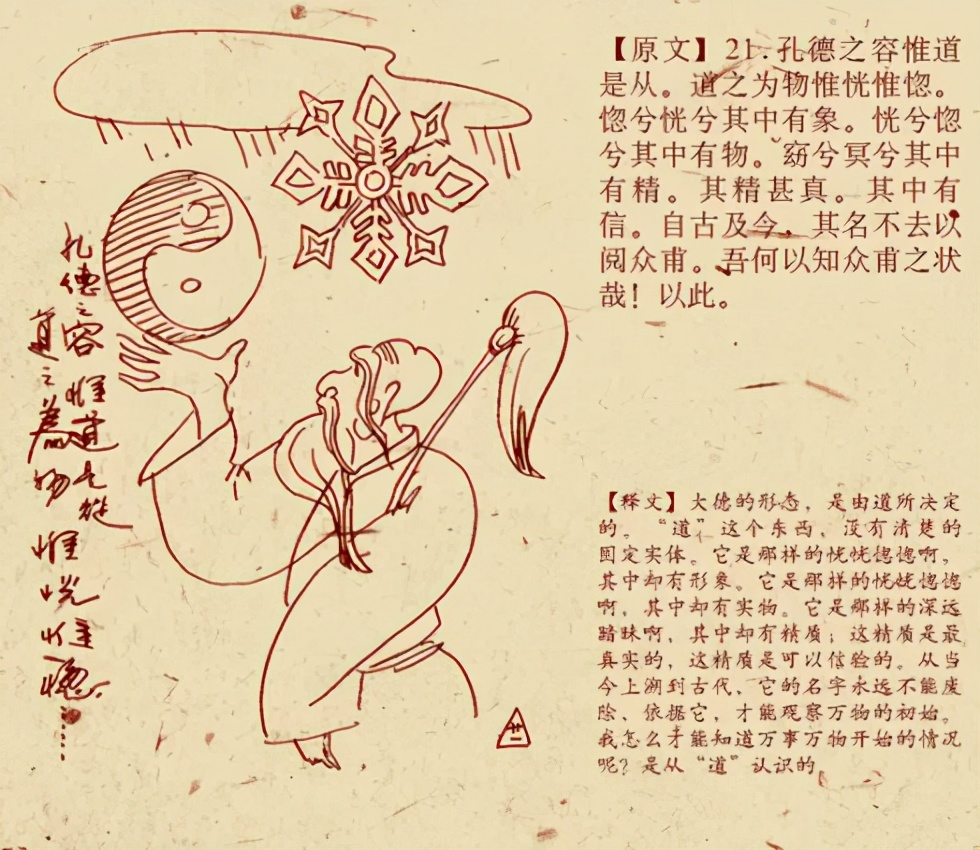 【原文】21.孔德之容惟道
是从。道之为物惟恍惟惚。
惚兮恍兮其中有象。恍兮惚
兮其中有物。窈兮冥兮其中
有精。其精甚真。其中有
信。自古及今，其名不去以
阅众甫。吾何以知众甫之状
哉！以此。
孔德之容惟道是從
道之為物惟恍惟惚……
【释文】大德的形态，是由道所决定
的。“道”这个东西，没有清楚的
固定实体。它是那样的恍恍惚惚啊，
其中却有形象。它是那样的恍恍惚惚
啊，其中却有实物。它是那样的深远
暗昧啊，其中却有精质；这精质是最
真实的，这精质是可以信验的。从当
今上溯到古代、它的名字永远不能废
除、依据它，才能观察万物的初始。
我怎么才能知道万事万物开始的情况
呢？是从“道”认识的
廿一